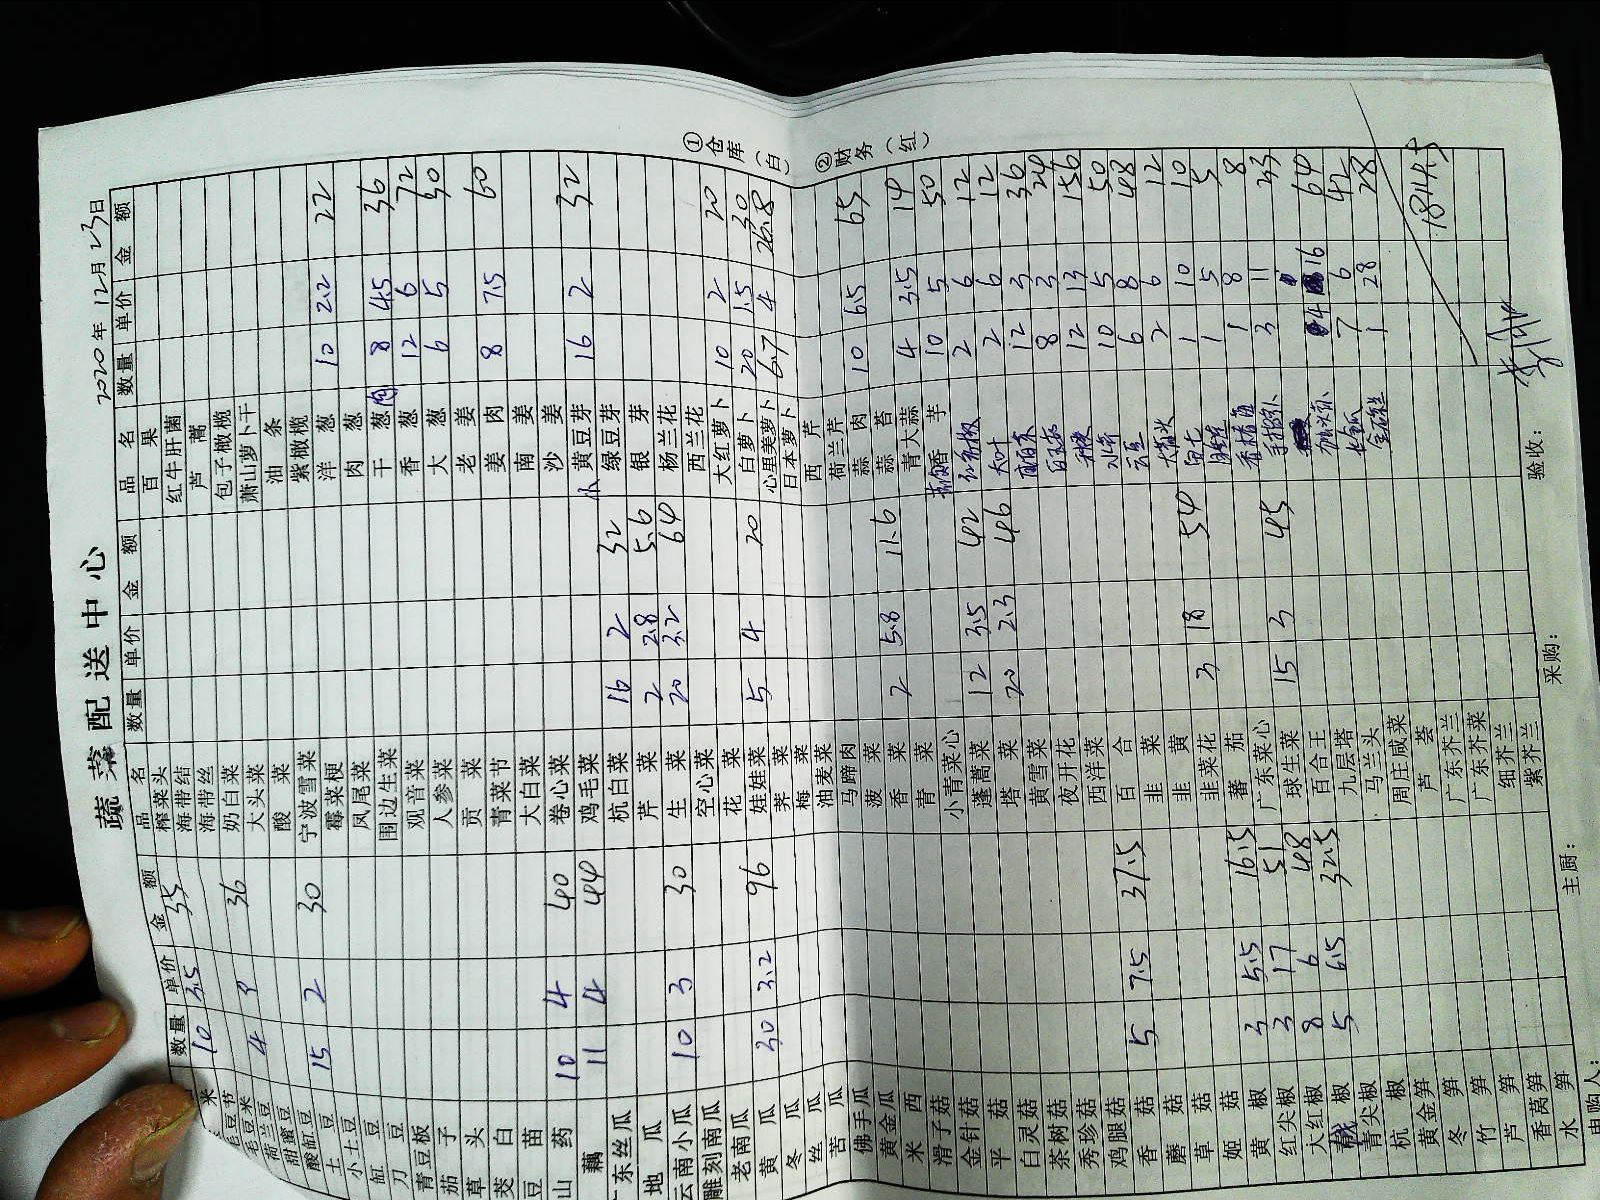 蔬菜配送中心
2020年12月23日
品名 数量 单价 金额
米 10 3.5 35
毛豆节
毛豆米 4 9 36
荷兰豆
甜蜜豆
酸缸豆 15 2 30
土豆
小土豆
缸豆
刀豆
青豆板
茄子
草头
茭白
豆苗
山药 10 4 40
藕 11 4 44
广东丝瓜
地瓜
云南小瓜 10 3 30
雕刻南瓜
老南瓜
黄瓜 30 3.2 96
冬瓜
丝瓜
苦瓜
佛手瓜
黄金瓜
米西
滑子菇
金针菇
平菇
白灵菇
茶树菇
秀珍菇
鸡腿菇
香菇 5 7.5 37.5
蘑菇
草菇
姬菇
黄椒 3 5.5 16.5
红尖椒 3 17 51
大红椒 8 6 48
椒 5 6.5 32.5
青尖椒
杭椒
黄金笋
冬笋
竹笋
芦笋
香莴笋
水笋
品名 数量 单价 金额
榨菜头
海带结
海带丝
奶白菜
大头菜
酸菜
宁波雪菜
霉菜梗
凤尾菜
围边生菜
观音菜
人参菜
贡菜
青菜节
大白菜
卷心菜
鸡毛菜
杭白菜 16 2 32
芹菜 2 2.8 5.6
生菜 20 3.2 64
空心菜
花菜
娃娃菜 5 4 20
荠菜
梅菜
油麦菜
马蹄肉
菠菜
香菜 2 5.8 11.6
青菜
小青菜心
蓬蒿菜 12 3.5 42
塔菜 20 2.3 46
黄雪菜
夜开花
西洋菜
百合
韭菜
韭黄
韭菜花 3 18 54
蕃茄
广东菜心
球生菜 15 3 45
百合王
九层塔
马兰头
周庄咸菜
芦荟
广东芥兰
广东芥菜
细芥兰
紫芥兰
品名 数量 单价 金额
百果
红牛肝菌
芦蒿
包子橄榄
萧山萝卜干
油条
紫橄榄
洋葱 10 2.2 22
肉葱
干葱肉 8 4.5 36
香葱 12 6 72
大葱 6 5 30
老姜
姜肉 8 7.5 60
南姜
沙姜
黄豆芽 16 2 32
绿豆芽
银芽
杨兰花
西兰花
大红萝卜 10 2 20
白萝卜 20 1.5 30
心里美萝卜 6.7 4 26.8
日本萝卜
西芹
荷兰芹
蒜肉 10 6.5 65
蒜苔
青大蒜 4 3.5 14
香芋 10 5 50
2 6 12
2 6 12
12 3 36
8 3 24
12 13 156
10 5 50
6 8 48
2 6 12
1 10 10
1 5 5
1 8 8
3 11 33
4 16 64
7 6 42
1 28 28
1811.5
①仓库（白）
②财务（红）
申购人：
主厨：
采购：
验收：